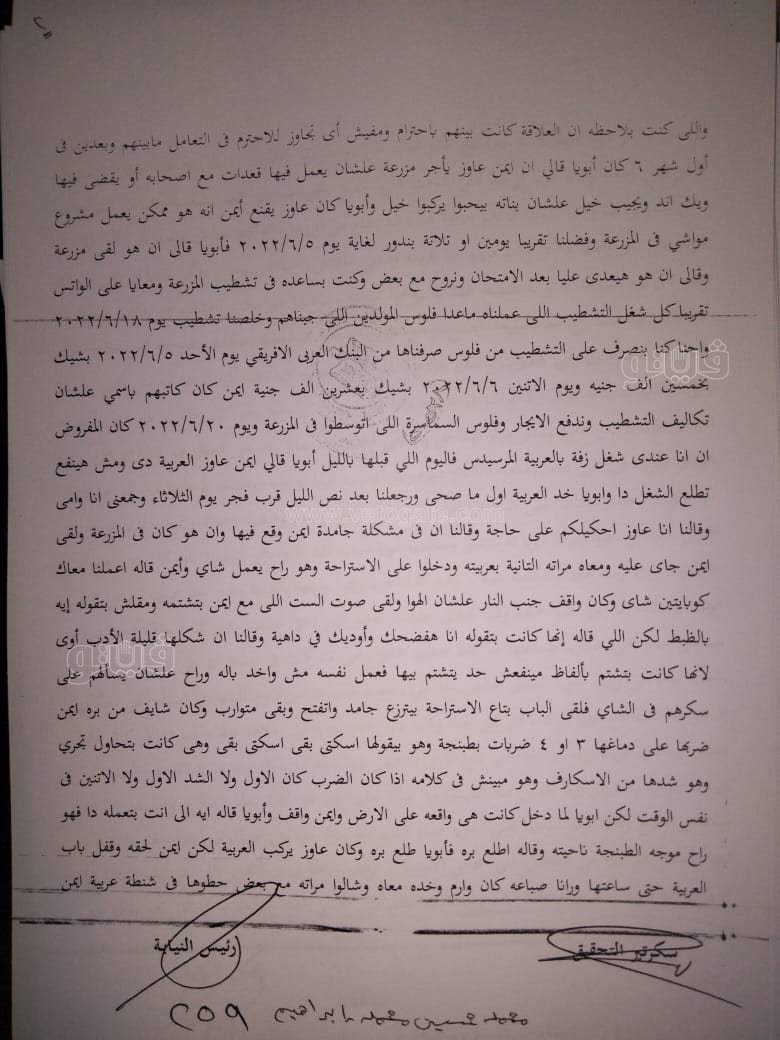 ٢
واللى كنت بلاحظه ان العلاقة كانت بينهم باحترام ومفيش أى تجاوز للاحترم فى التعامل مابينهم وبعدين فى
أول شهر ٦ كان أبويا قالي ان ايمن عاوز يأجر مزرعة علشان يعمل فيها قعدات مع اصحابه أو يقضى فيها
ويك اند ويجيب خيل علشان بناته بيحبوا يركبوا خيل وأبويا كان عاوز يقنع أيمن انه هو ممكن يعمل مشروع
مواشي فى المزرعة وفضلنا تقريبا يومين او تلاتة بندور لغاية يوم ٢٠٢٢/٦/٥ فأبويا قالى ان هو لقى مزرعة
وقالى ان هو هيعدى عليا بعد الامتحان ونروح مع بعض وكنت بساعده فى تشطيب المزرعة ومعايا على الواتس
تقريبا كل شغل التشطيب اللى عملناه ماعدا فلوس المولدين اللى جبناهم وخلصنا تشطيب يوم ٢٠٢٢/٦/١٨
واحنا كنا بنصرف على التشطيب من فلوس صرفناها من البنك العربى الافريقي يوم الأحد ٢٠٢٢/٦/٥ بشيك
بخمسين الف جنيه ويوم الاتنين ٢٠٢٢/٦/٦ بشيك بعشرين الف جنية ايمن كان كاتبهم باسمي علشان
تكاليف التشطيب وندفع الايجار وفلوس السماسرة اللى اتوسطوا فى المزرعة ويوم ٢٠٢٢/٦/٢٠ كان المفروض
ان انا عندى شغل زفة بالعربية المرسيدس فاليوم اللي قبلها بالليل أبويا قالي ايمن عاوز العربية دى ومش هينفع
تطلع الشغل دا وابويا خد العربية اول ما صحى ورجعلنا بعد نص الليل قرب فجر يوم الثلاثاء وجمعنى انا وامى
وقالنا انا عاوز احكيلكم على حاجة وقالنا ان فى مشكلة جامدة ايمن وقع فيها وان هو كان فى المزرعة ولقى
ايمن جاى عليه ومعاه مراته التانية بعربيته ودخلوا على الاستراحة وهو راح يعمل شاي وأيمن قاله اعملنا معاك
كوبايتين شاى وكان واقف جنب النار علشان الهوا ولقى صوت الست اللى مع ايمن بتشتمه ومقلش بتقوله إيه
بالظبط لكن اللي قاله إنها كانت بتقوله انا هفضحك وأوديك في داهية وقالنا ان شكلها قليلة الأدب أوى
لانها كانت بتشتم بألفاظ مينفعش حد يتشتم بيها فعمل نفسه مش واخد باله وراح علشان يسألهم على
سكرهم فى الشاي فلقى الباب بتاع الاستراحة بيترزع جامد واتفتح وبقى متوارب وكان شايف من بره ايمن
ضربها على دماغها ٣ او ٤ ضربات بطبنجة وهو بيقولها اسكتى بقى اسكتى بقى وهى كانت بتحاول تجري
وهو شدها من الاسكارف وهو مبينش فى كلامه اذا كان الضرب كان الاول ولا الشد الاول ولا الاتنين فى
نفس الوقت لكن ابويا لما دخل كانت هى واقعه على الارض وايمن واقف وأبويا قاله ايه الى انت بتعمله دا فهو
راح موجه الطبنجة ناحيته وقاله اطلع بره فأبويا طلع بره وكان عاوز يركب العربية لكن ايمن لحقه وقفل باب
العربية حتى ساعتها ورانا صباعه كان وارم وخده معاه وشالوا مراته مع بعض حطوها فى شنطة عربية ايمن
سكرتير التحقيق
رئيس النيابة
محمد حسين محمد ابراهيم
٢٥٩
فيتو
فيتو
www.vetogate.com